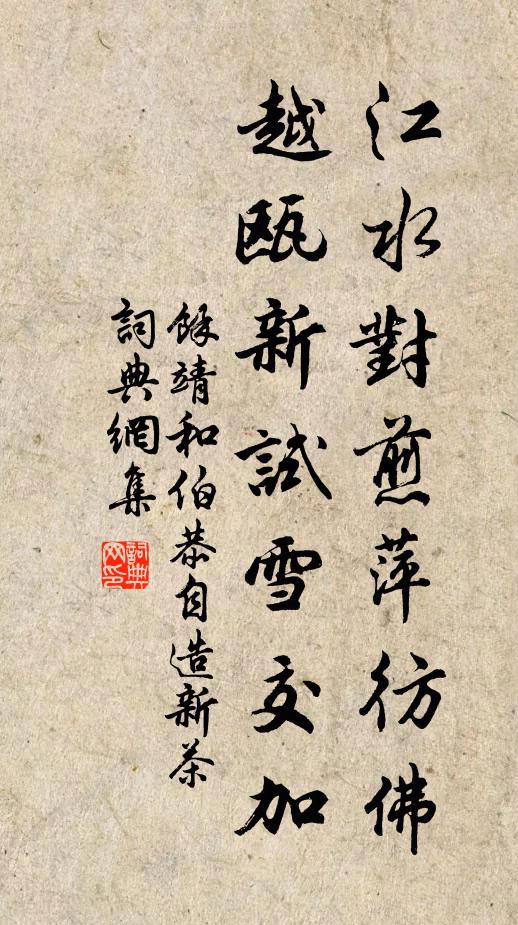 江水對煎萍彷佛
越甌新試雪交加
餘靖和伯恭自造新茶
詞典網集
詞典
網印